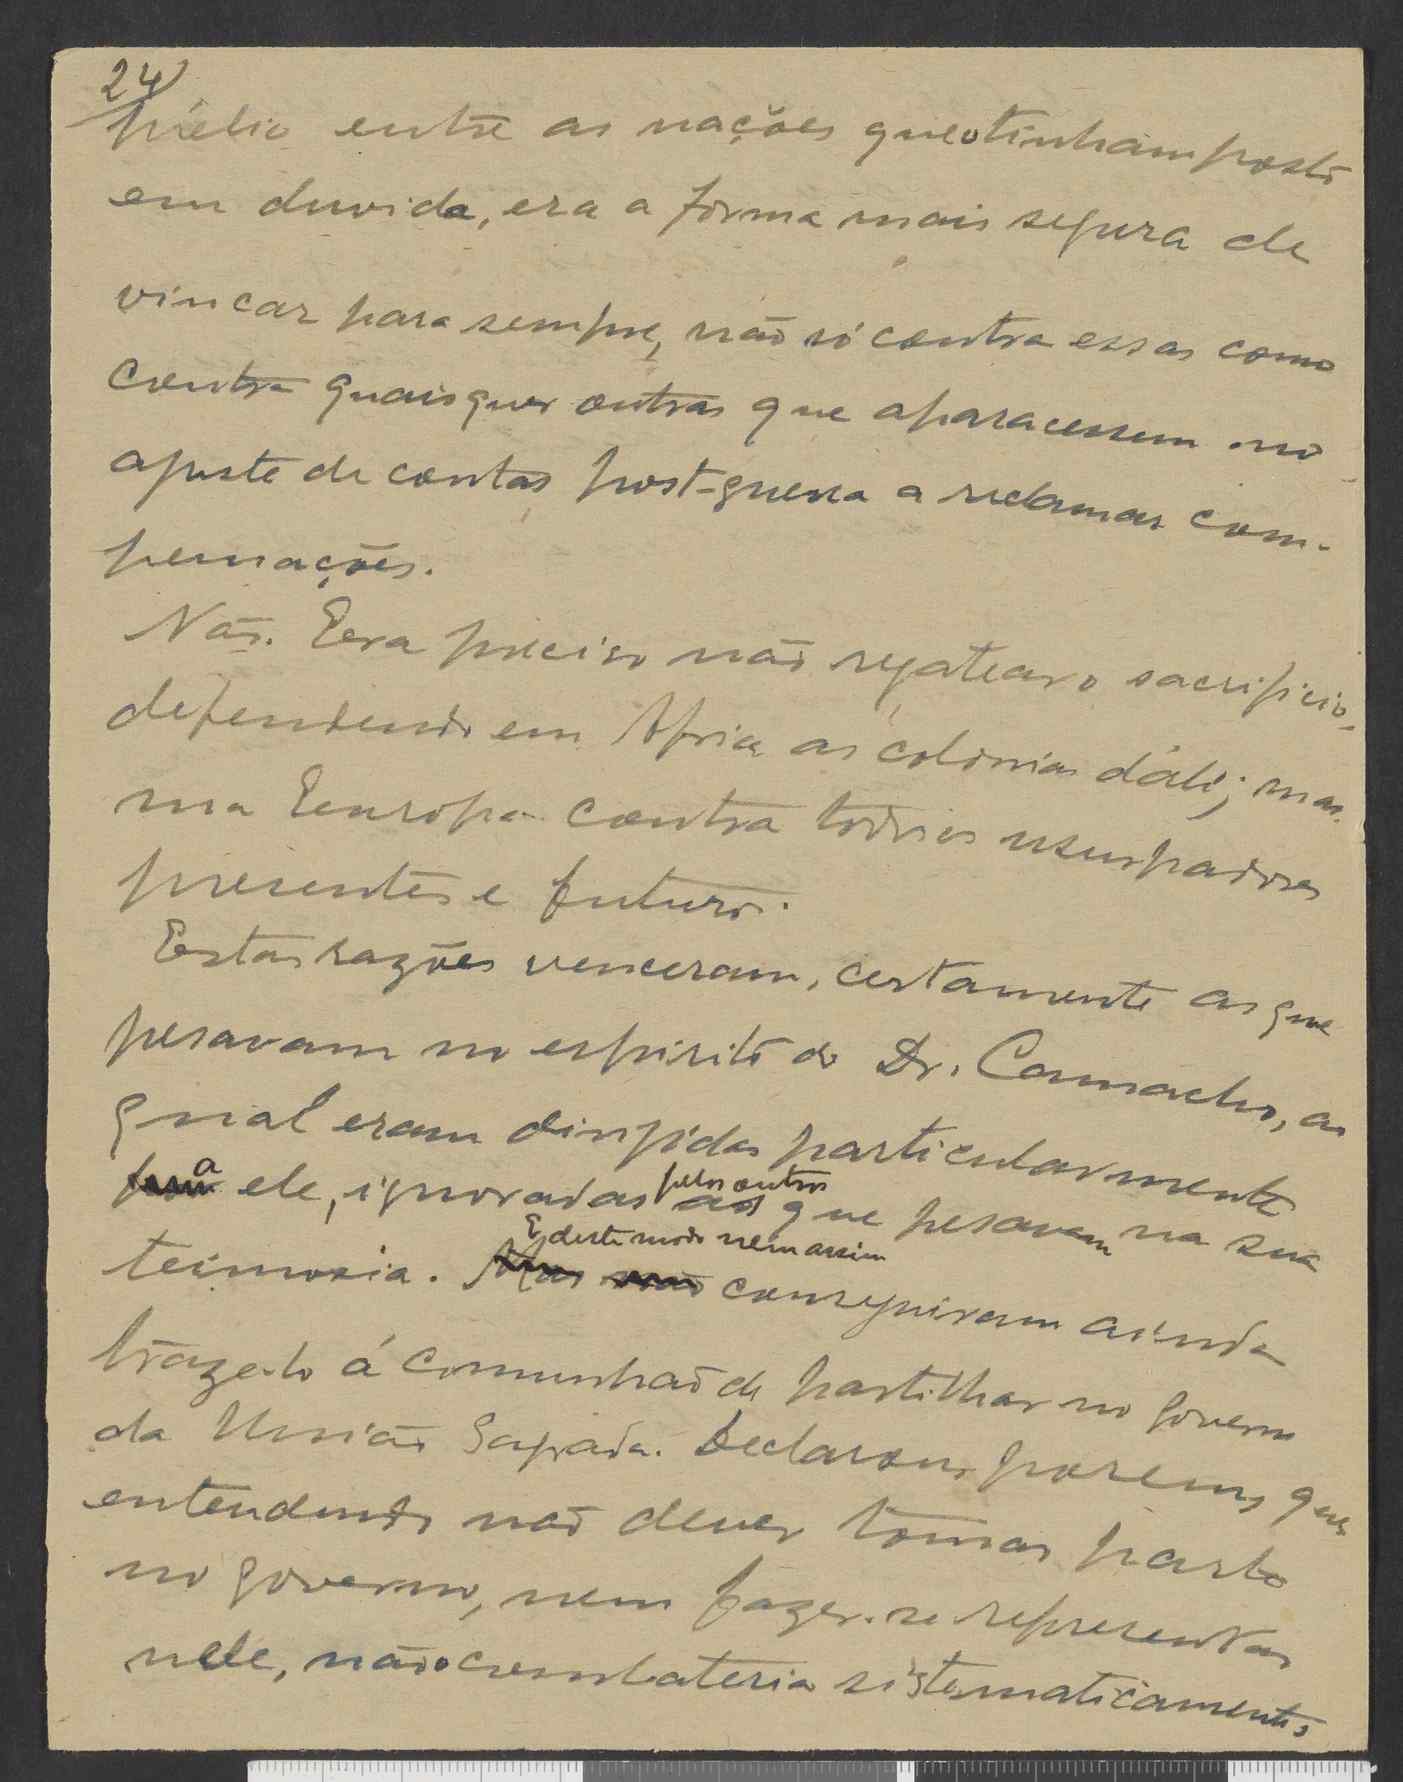 24)
púlio entre as nações que o tinham posto
em duvida, era a forma mais segura de
vincar para sempre, não só contra essas como
contra quaisquer outras que aparacessem no
ajuste de contas post-guerra a reclamar com-
pensações.
Não. Era preciso não regatear o sacrificio,
defendendo em Africa as colonias dáli; mas
na Europa contra todos os usurpadores
presentes e futuros.
Estas razões venceram, certamente as que
pesavam no espirito do Dr. Camacho, as
qual eram dirigidas particularmente
a ele, ignoradas pelos outros as que pesavam na sua
teimosia. E deste modo nem assim conseguiram ainda
traze-lo á comunhão de partilhar no governo
da União Sagrada. Declarou, porem, que
entendendo não dever tomar parte
no governo, nem fazer-se representar
nele, não o combateria sistematicamente,